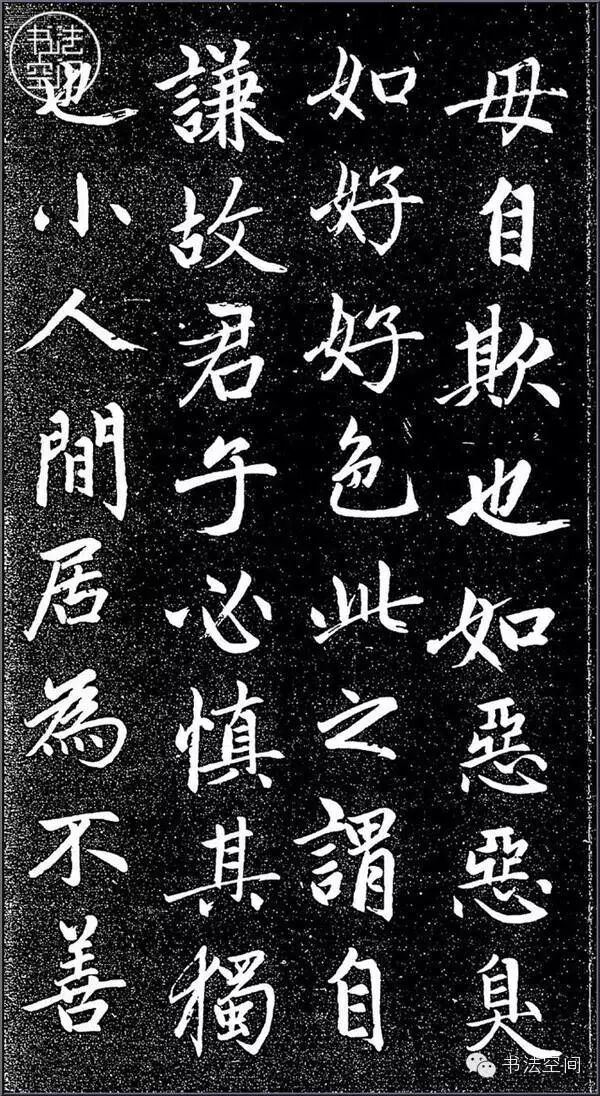 毋自欺也如惡惡臭
如好好色此之謂自
謙故君子必慎其獨
也小人閒居為不善
书法空间
书法空间